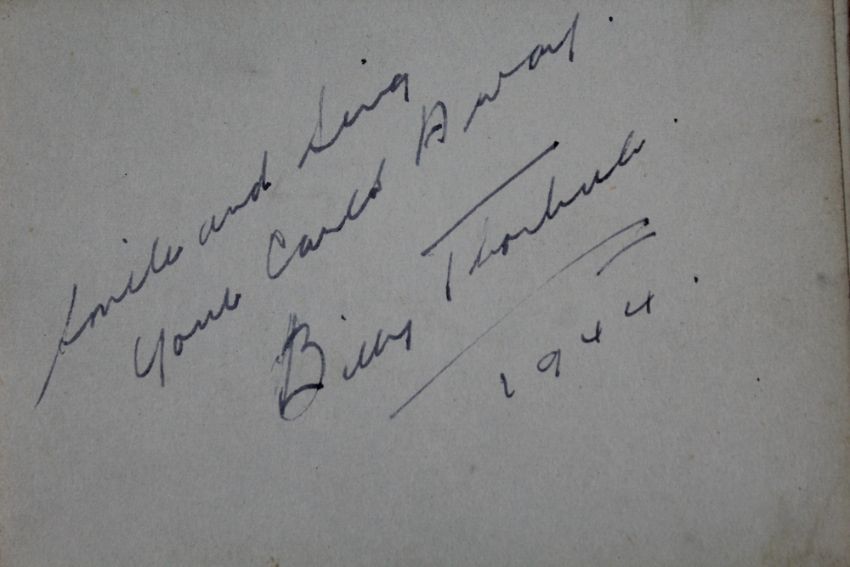 Smile and Sing
Your Cares Away.
Billy Thorburn.
1944.